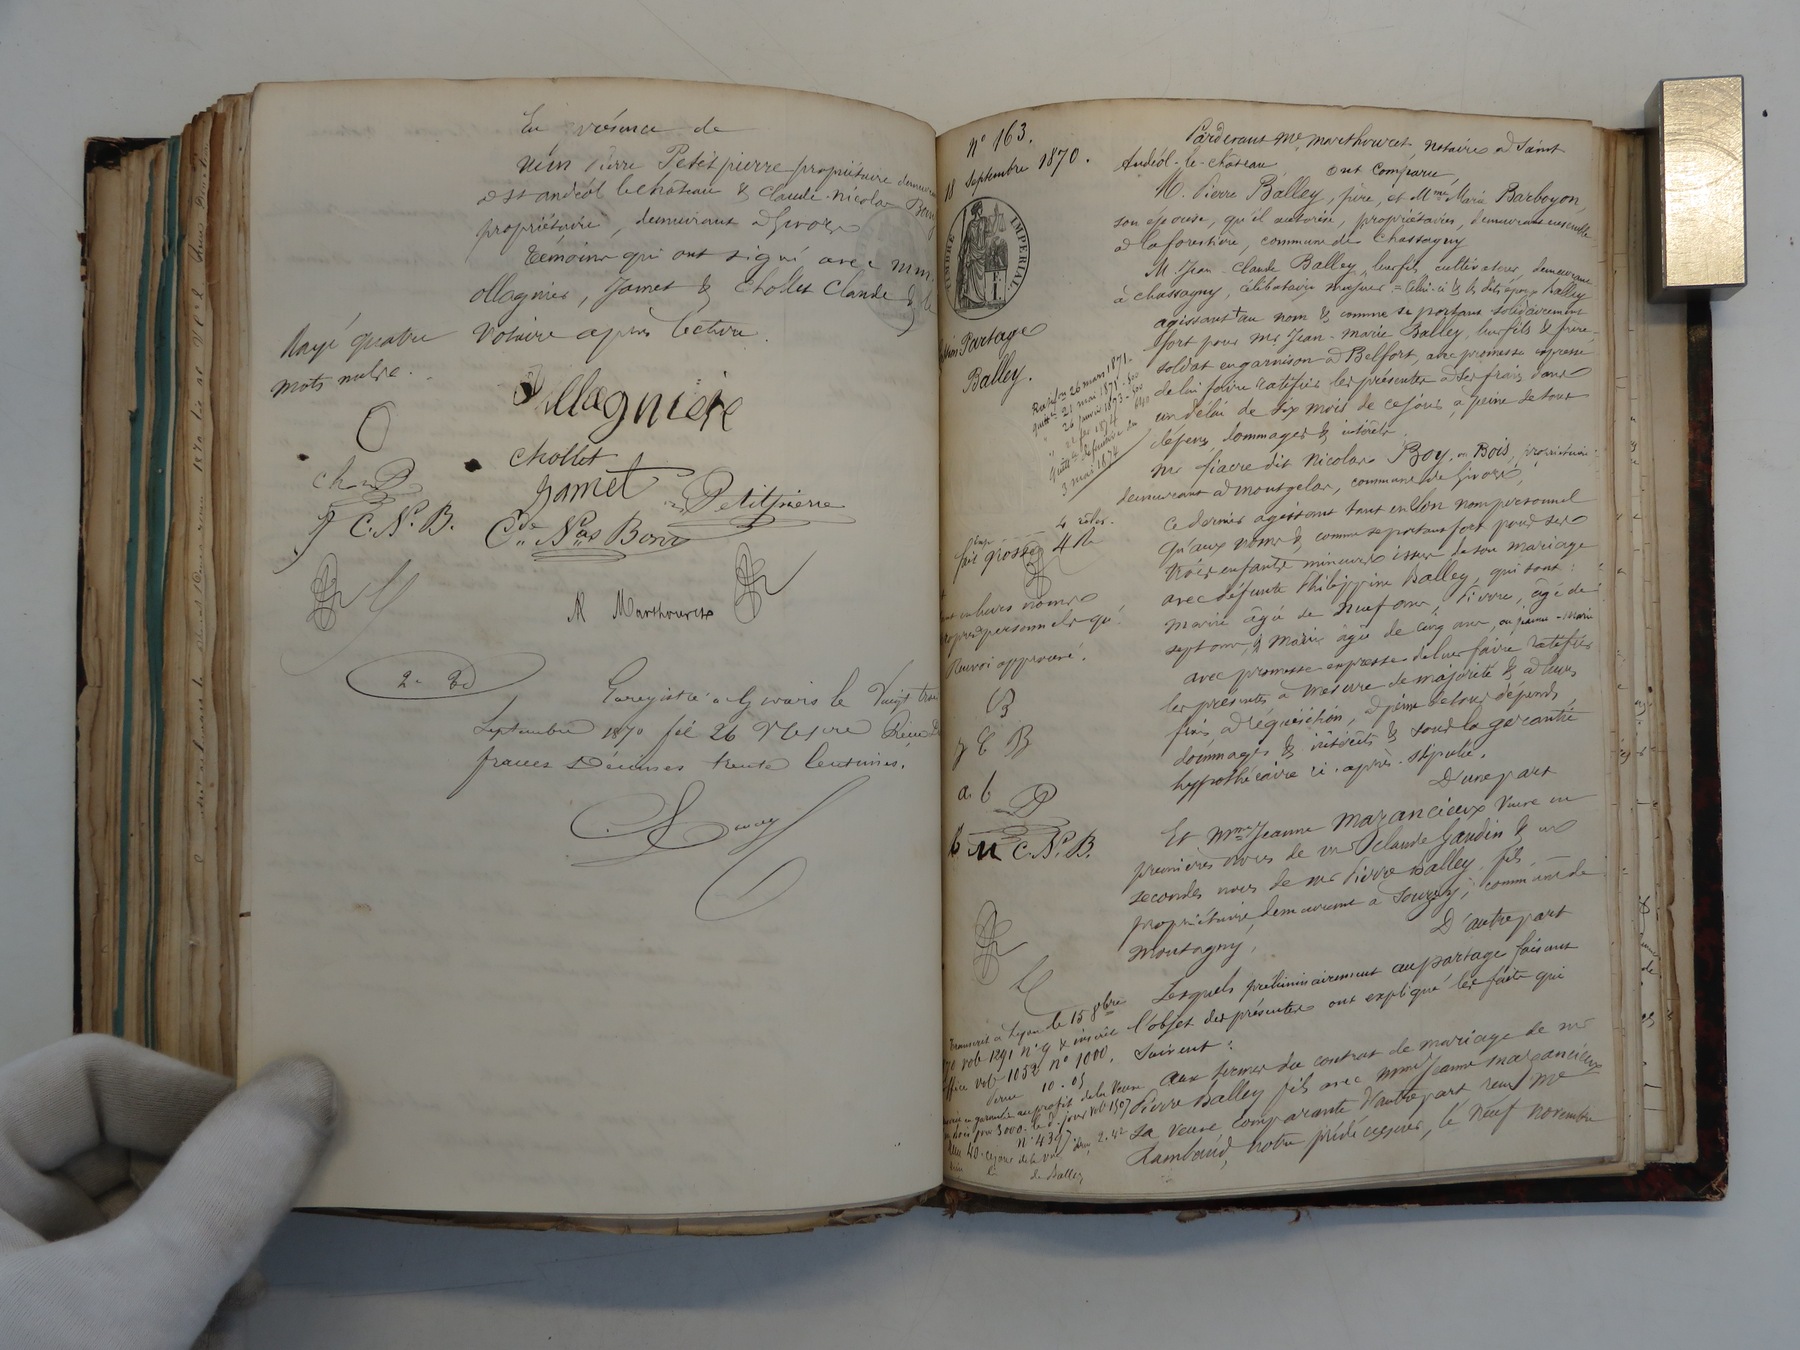 En présence de
MM Pierre Petitpierre propriétaire
à St andéol le château & Claude-Nicolas Bony
propriétaire, demeurant à Givors
Témoins qui ont signé avec MM.
ollagnier, Jamet & Chollet Claude & le
Notaire après lecture.
Rayé quatre
mots nuls.
Ollagniere
chollet
Jamet
Petitpierre
C. N. B.
Cde Nas Bony
Marthouret
Enregistré à Givors le Vingt trois
Septembre 1870 fol 26
francs Décimes trente centimes.
n° 163.
18 Septembre 1870.
TIMBRE IMPERIAL
Partage
Balley.
26 mars 1871.
21 mai 1871
26 janvier 1873
3 mai 1874
4 rôles.
fait grosse
propres personnels qu'
Renvoi approuvé.
B
a. b
C. N. B.
Transcrit à Lyon le 15 8bre
70 vol. 1291 n° 9 & inscrit
office vol. 1052 n° 1000.
10.05
au profit de la Veuve
n° 4397
de Balley
Pardevant Me Marthouret, notaire à Saint
Andéol-le-château
ont Comparu,
M. Pierre Balley, père, et Mme Marie Barboyon,
son épouse, qu'il autorise, propriétaires, demeurant ensemble
à laforestière, commune de Chassagny
M. Jean-Claude Balley, leur fils, cultivateur, demeurant
à Chassagny, célibataire majeur = Celui-ci & les dits époux Balley
agissant au nom & comme se portant solidairement
fort pour Mr Jean-Marie Balley, leur fils & frère,
soldat en garnison à Belfort, avec promesse expresse
de lui faire ratifier les présentes à ses frais dans
un délai de six mois de ce jour, à peine de tous
dépens, dommages & intérêts.
Mr fiacre dit Nicolas Boy, ou Bois, propriétaire
demeurant à Montgelas, commune de Givors,
ce dernier agissant tant en son nom personnel
qu'aux noms & comme se portant fort pour ses
trois enfants mineurs issus de son mariage
avec défunte Philippine Balley, qui sont :
Marie âgée de neuf ans, Pierre, âgé de
sept ans, & Marie âgée de cinq ans, ou Jeanne-Marie
avec promesse expresse de leur faire ratifier
les présentes, à mesure de majorité & à leurs
frais à réquisition, à peine de tous dépends,
dommages & intérêts & sous la garantie
hypothécaire ci-après stipulée.
D'une part
Et Mme Jeanne Marancieux Veuve en
premières noces de Mr Claude Gaudin & en
secondes noces de Mr Pierre Balley, fils,
propriétaire, demeurant à Sourzy, commune de
Montagny,
D'autre part
Lesquels préliminairement au partage faisant
l'objet des présentes ont expliqué les faits qui
suivent :
Aux termes du contrat de mariage de Mr
Pierre Balley fils avec Mme Jeanne Marancieux
sa veuve comparante d'autre part reçu Me
Rambaud, notre prédécesseur, le neuf novembre